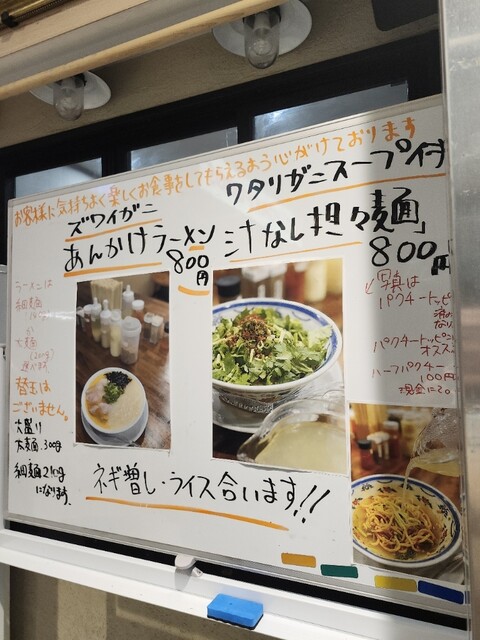 お客様に気持ちよく楽しくお食事をしてもらえるよう心がけております
ズワイガニ
あんかけラーメン
800円
ワタリガニスープ付
汁なし担々麺
800円
ラーメンは
細麺
太麺
替玉は
ございません。
大盛り
太麺300g
細麺210g
になります。
写真は
パクチートッピ
パクチートッピン
オススメ
ハーフパクチー
100円
現金にて。
ネギ増し・ライス合います!!